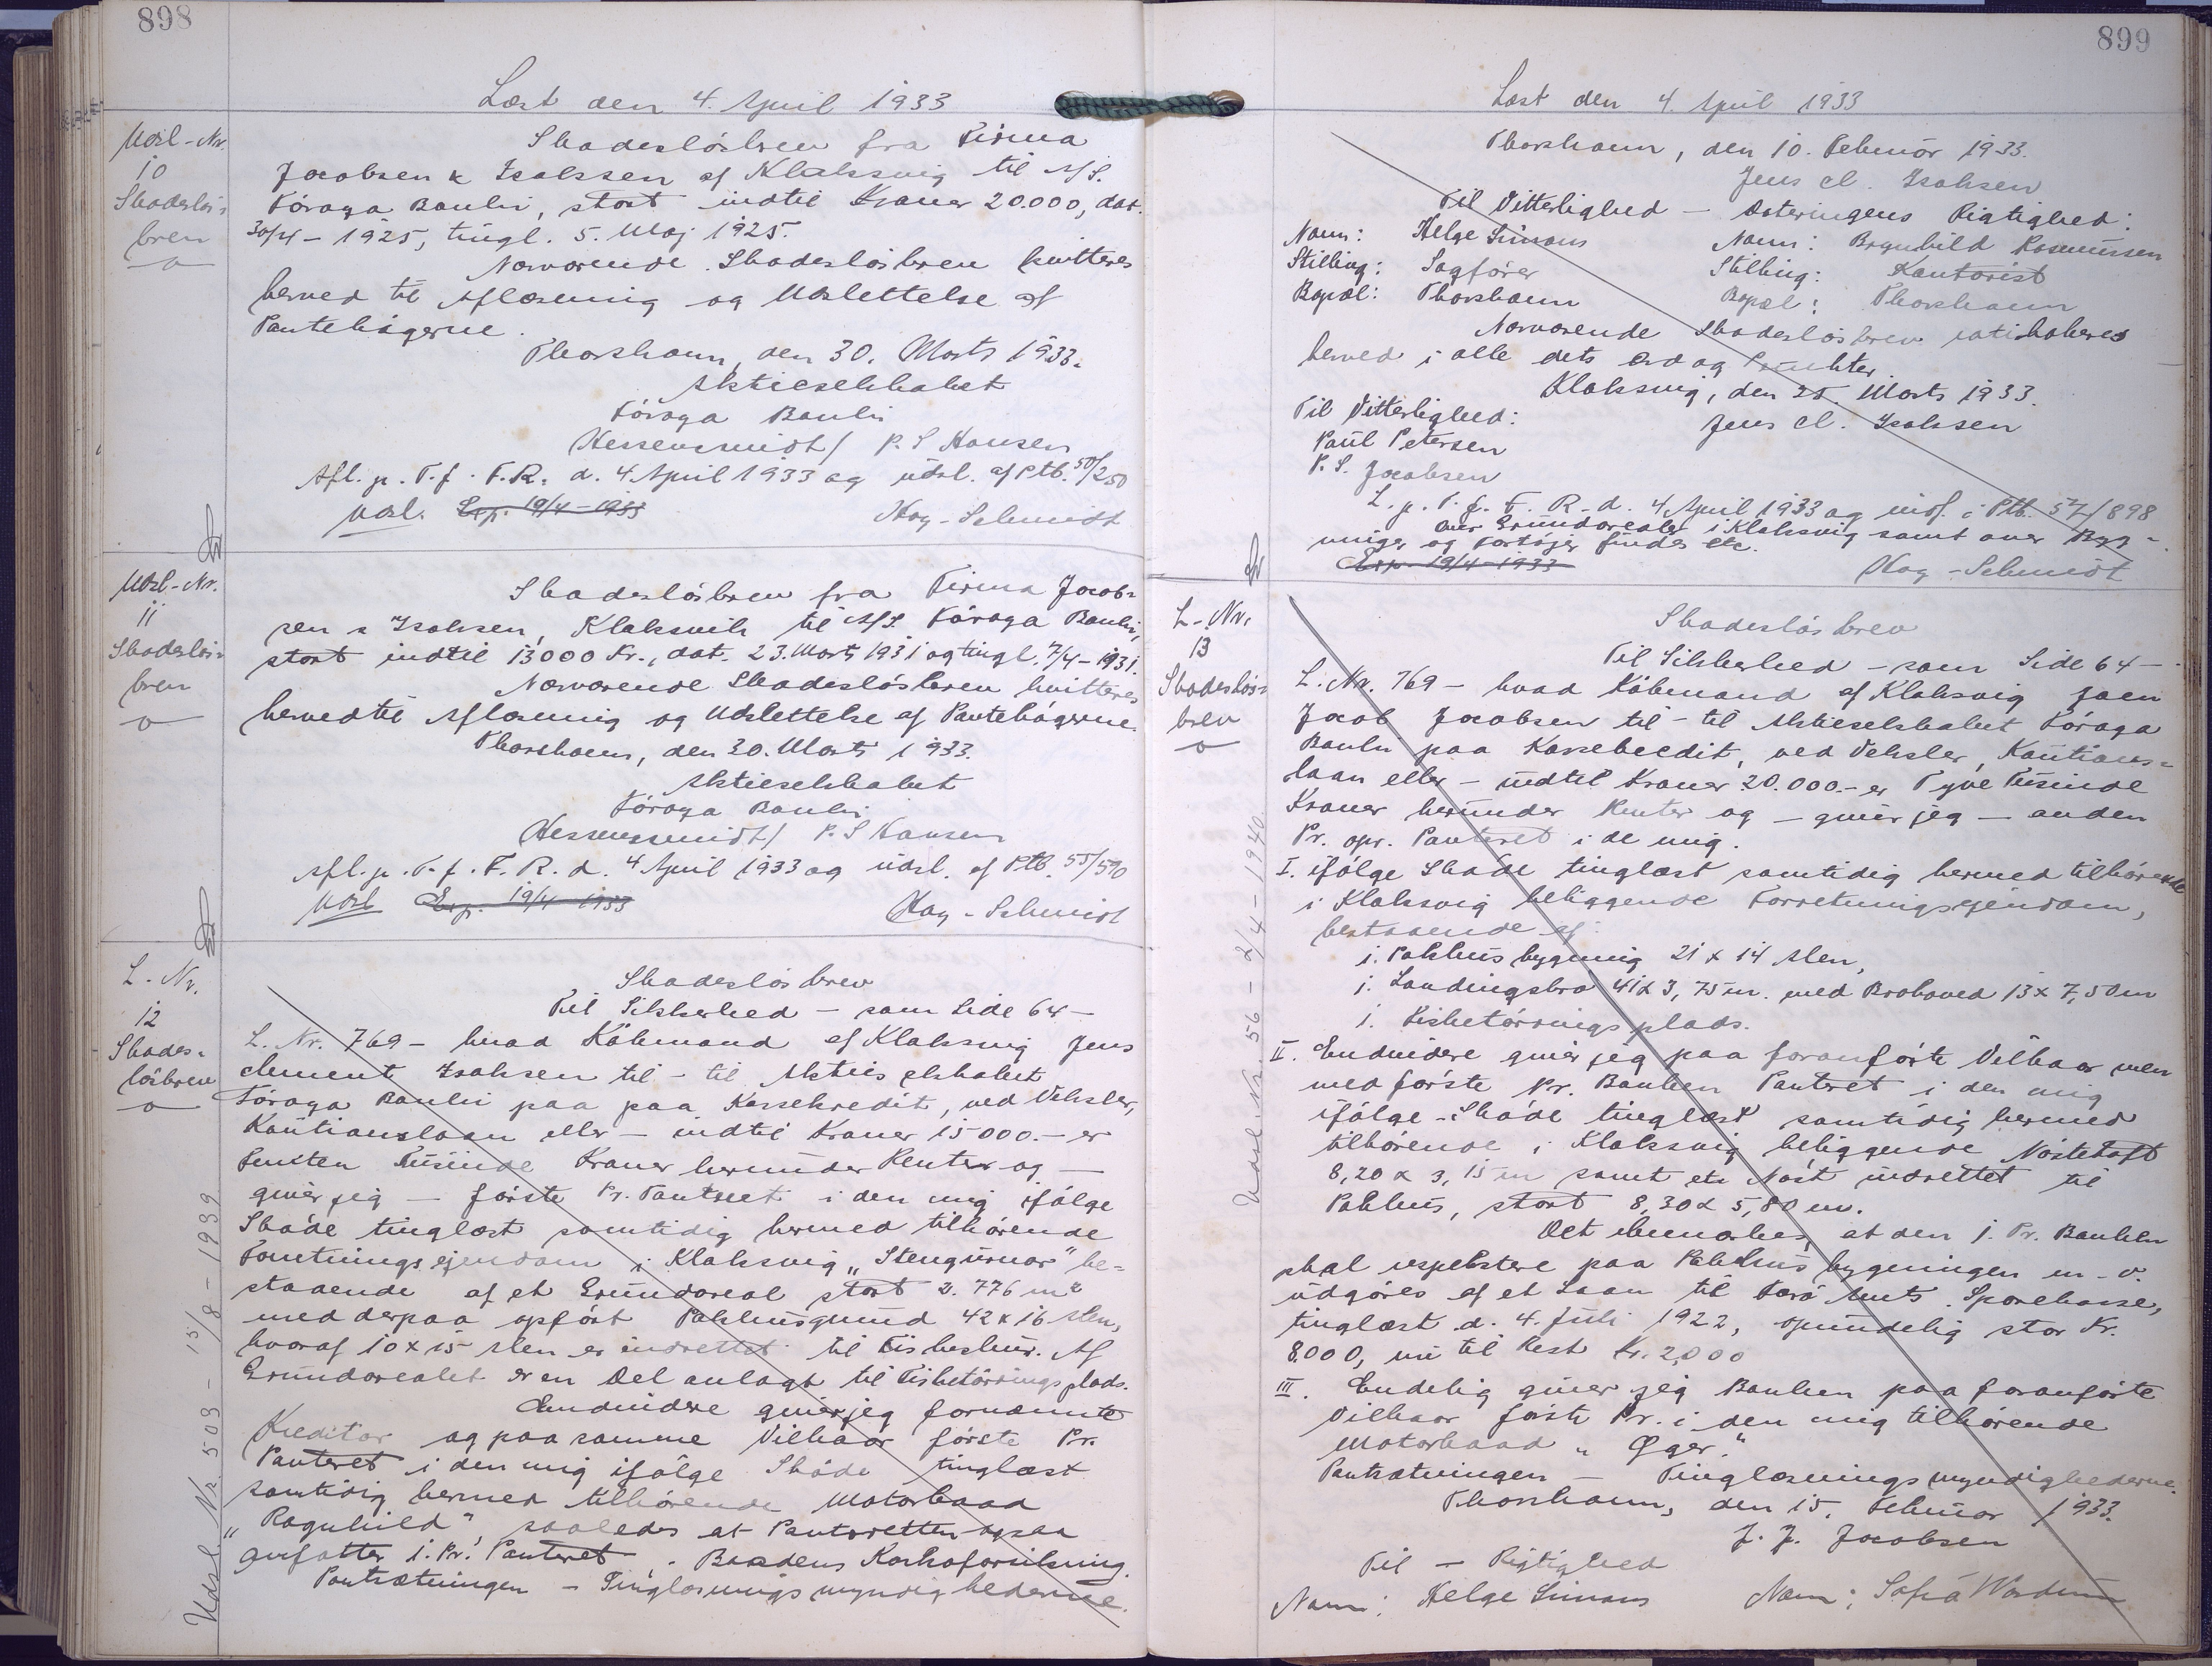 898
Læst den 4. April 1933
Udsl-Nr.
10
Skadesløs-
brev
Skadesløsbrev fra Firma
Jacobsen & Isaksen af Klaksvig til A/S.
Föroya Banki, stort indtil Kroner 20.000, dat.
30/4 - 1925, tingl. 5. Maj 1925.
Nærværende Skadesløsbrev kvitteres
herved til Aflæsning og Udslettelse af
Pantebøgerne.
Thorshavn, den 30. Marts 1933.
Aktieselskabet
Föroya Banki
Kessenssmidt / P. S Hansen
Afl. p. T. f. F. R. d. 4 April 1933 og udsl. af Ptb. 50/250
Udsl. Exp. 19/4 - 1933
Kay-Schmidt
Udsl-Nr.
11
Skadesløs-
brev
Skadesløsbrev fra Firma Jacob-
sen & Isaksen, Klaksvik til A/S Föroya Banki,
stort indtil 13000 Kr., dat. 23. Marts 1931 og tingl. 7/4 - 1931.
Nærværende Skadesløsbrev kvitteres
herved til Aflæsning og Udslettelse af Pantebøgerne.
Thorshavn, den 30. Marts 1933.
Aktieselskabet
Föroya Banki
Kessenssmidt / P. S Hansen
Afl. p. T. f. F. R. d. 4 April 1933 og udsl. af Ptb. 55/590
Udsl Exp. 19/4 1933
Kay-Schmidt
L. Nr.
12
Skades-
løsbrev
Skadesløsbrev
Til Sikkerhed - som Side 64 -
L. Nr. 769 - hvad Købmand af Klaksvig Jens
Clement Isaksen til - til Aktieselskabet
Föroya Banki paa paa Kassekredit, ved Veksler,
Kautionslaan eller - indtil Kroner 15000.- er
Femten Tusinde Kroner herunder Renter og -
giver jeg - første Pr. Panteret i den mig ifølge
Skøde tinglæst samtidig hermed tilhørende
Forretningsejendom i Klaksvig "Stengurnar" be-
staaende af et Grundareal stort 2.776 m²
med derpaa opført Pakhusgrund 42 x 16 Alen,
hvoraf 10 x 15 Alen er indrettet til Fiskeskur. Af
Grundarealet er en Del anlagt til Fisketørringsplads.
Endvidere giver jeg fornævnte
Kreditor og paa samme Vilkaar første Pr.
Panteret i den mig ifølge Skøde tinglæst
samtidig hermed tilhørende Motorbaad
"Ragnhild", saaledes at Panteretten ogsaa
omfatter 1. Pr. Panteret i Baadens Kaskoforsikring.
Pantsætningen - Tinglæsningsmyndighederne.
Udsl. Nr. 503 - 15/8 - 1939
899
Læst den 4. April 1933
Thorshavn, den 10. Februar 1933.
Jens Cl. Isaksen
Til Vitterlighed - Dateringens Rigtighed:
Navn: Helge Simons Navn: Bagnhild Rasmussen
Stilling: Sagfører Stilling: Kontorist
Bopæl: Thorshavn Bopæl: Thorshavn
Nærværende Skadesløsbrev ratihaberes
herved i alle dets Ord og Punkter
Klaksvig, den 25. Marts 1933.
Til Vitterlighed: Jens Cl. Isaksen
Paul Petersen
P. S. Jacobsen
L. p. T. f. F. R. d. 4 April 1933 og indf. i Ptb. 57/898
over Grundarealet i Klaksvig samt over Byg-
ninger og Fartøjer findes etc.
Exp. 19/4 - 1933
Kay-Schmidt
L-Nr.
13
Skadesløs-
brev
Skadesløsbrev
Til Sikkerhed - som Side 64 -
L. Nr. 769 - hvad Købmand af Klaksvig Joen
Jacob Jacobsen til - til Aktieselskabet Föroya
Banki paa Kassekredit, ved Veksler, Kautions-
laan eller - indtil Kroner 20.000.- er Tyve Tusinde
Kroner herunder Renter og - giver jeg - anden
Pr. opr. Panteret i de mig.
I. ifølge Skøde tinglæst samtidig hermed tilhørende
i Klaksvig beliggende Forretningsejendom,
bestaaende af
1. Pakhusbygning 21 x 14 Alen,
1. Landingsbro 41 x 3,75 m. med Brohoved 13 x 7,50 m
1. Fisketørringsplads.
II. Endvidere giver jeg paa foranførte Vilkaar men
med første Pr. Banken Panteret i den mig
ifølge Skøde tinglæst samtidig hermed
tilhørende i Klaksvig beliggende Nøstetoft
8,20 x 3,15 m samt et Nøst indrettet til
Pakhus, stort 8,30 x 5,80 m.
Det bemærkes, at den 1. Pr. Banken
skal respektere paa Pakhusbygningen m. v.
udgøres af et Laan til Færø Amts Sparekasse,
tinglæst d. 4. Juli 1922, oprindelig stor Kr.
8.000, nu til Rest Kr. 2,000
III. Endelig giver jeg Banken paa foranførte
Vilkaar første Pr. i den mig tilhørende
Motorbaad "Øger."
Pantsætningen - Tinglæsningsmyndighederne.
Thorshavn, den 15. Februar 1933.
J. J. Jacobsen
Til - Rigtighed
Navn: Helge Simons Navn: Sofia Wardum
Udsl. Nr. 56 - 2/4 - 1940